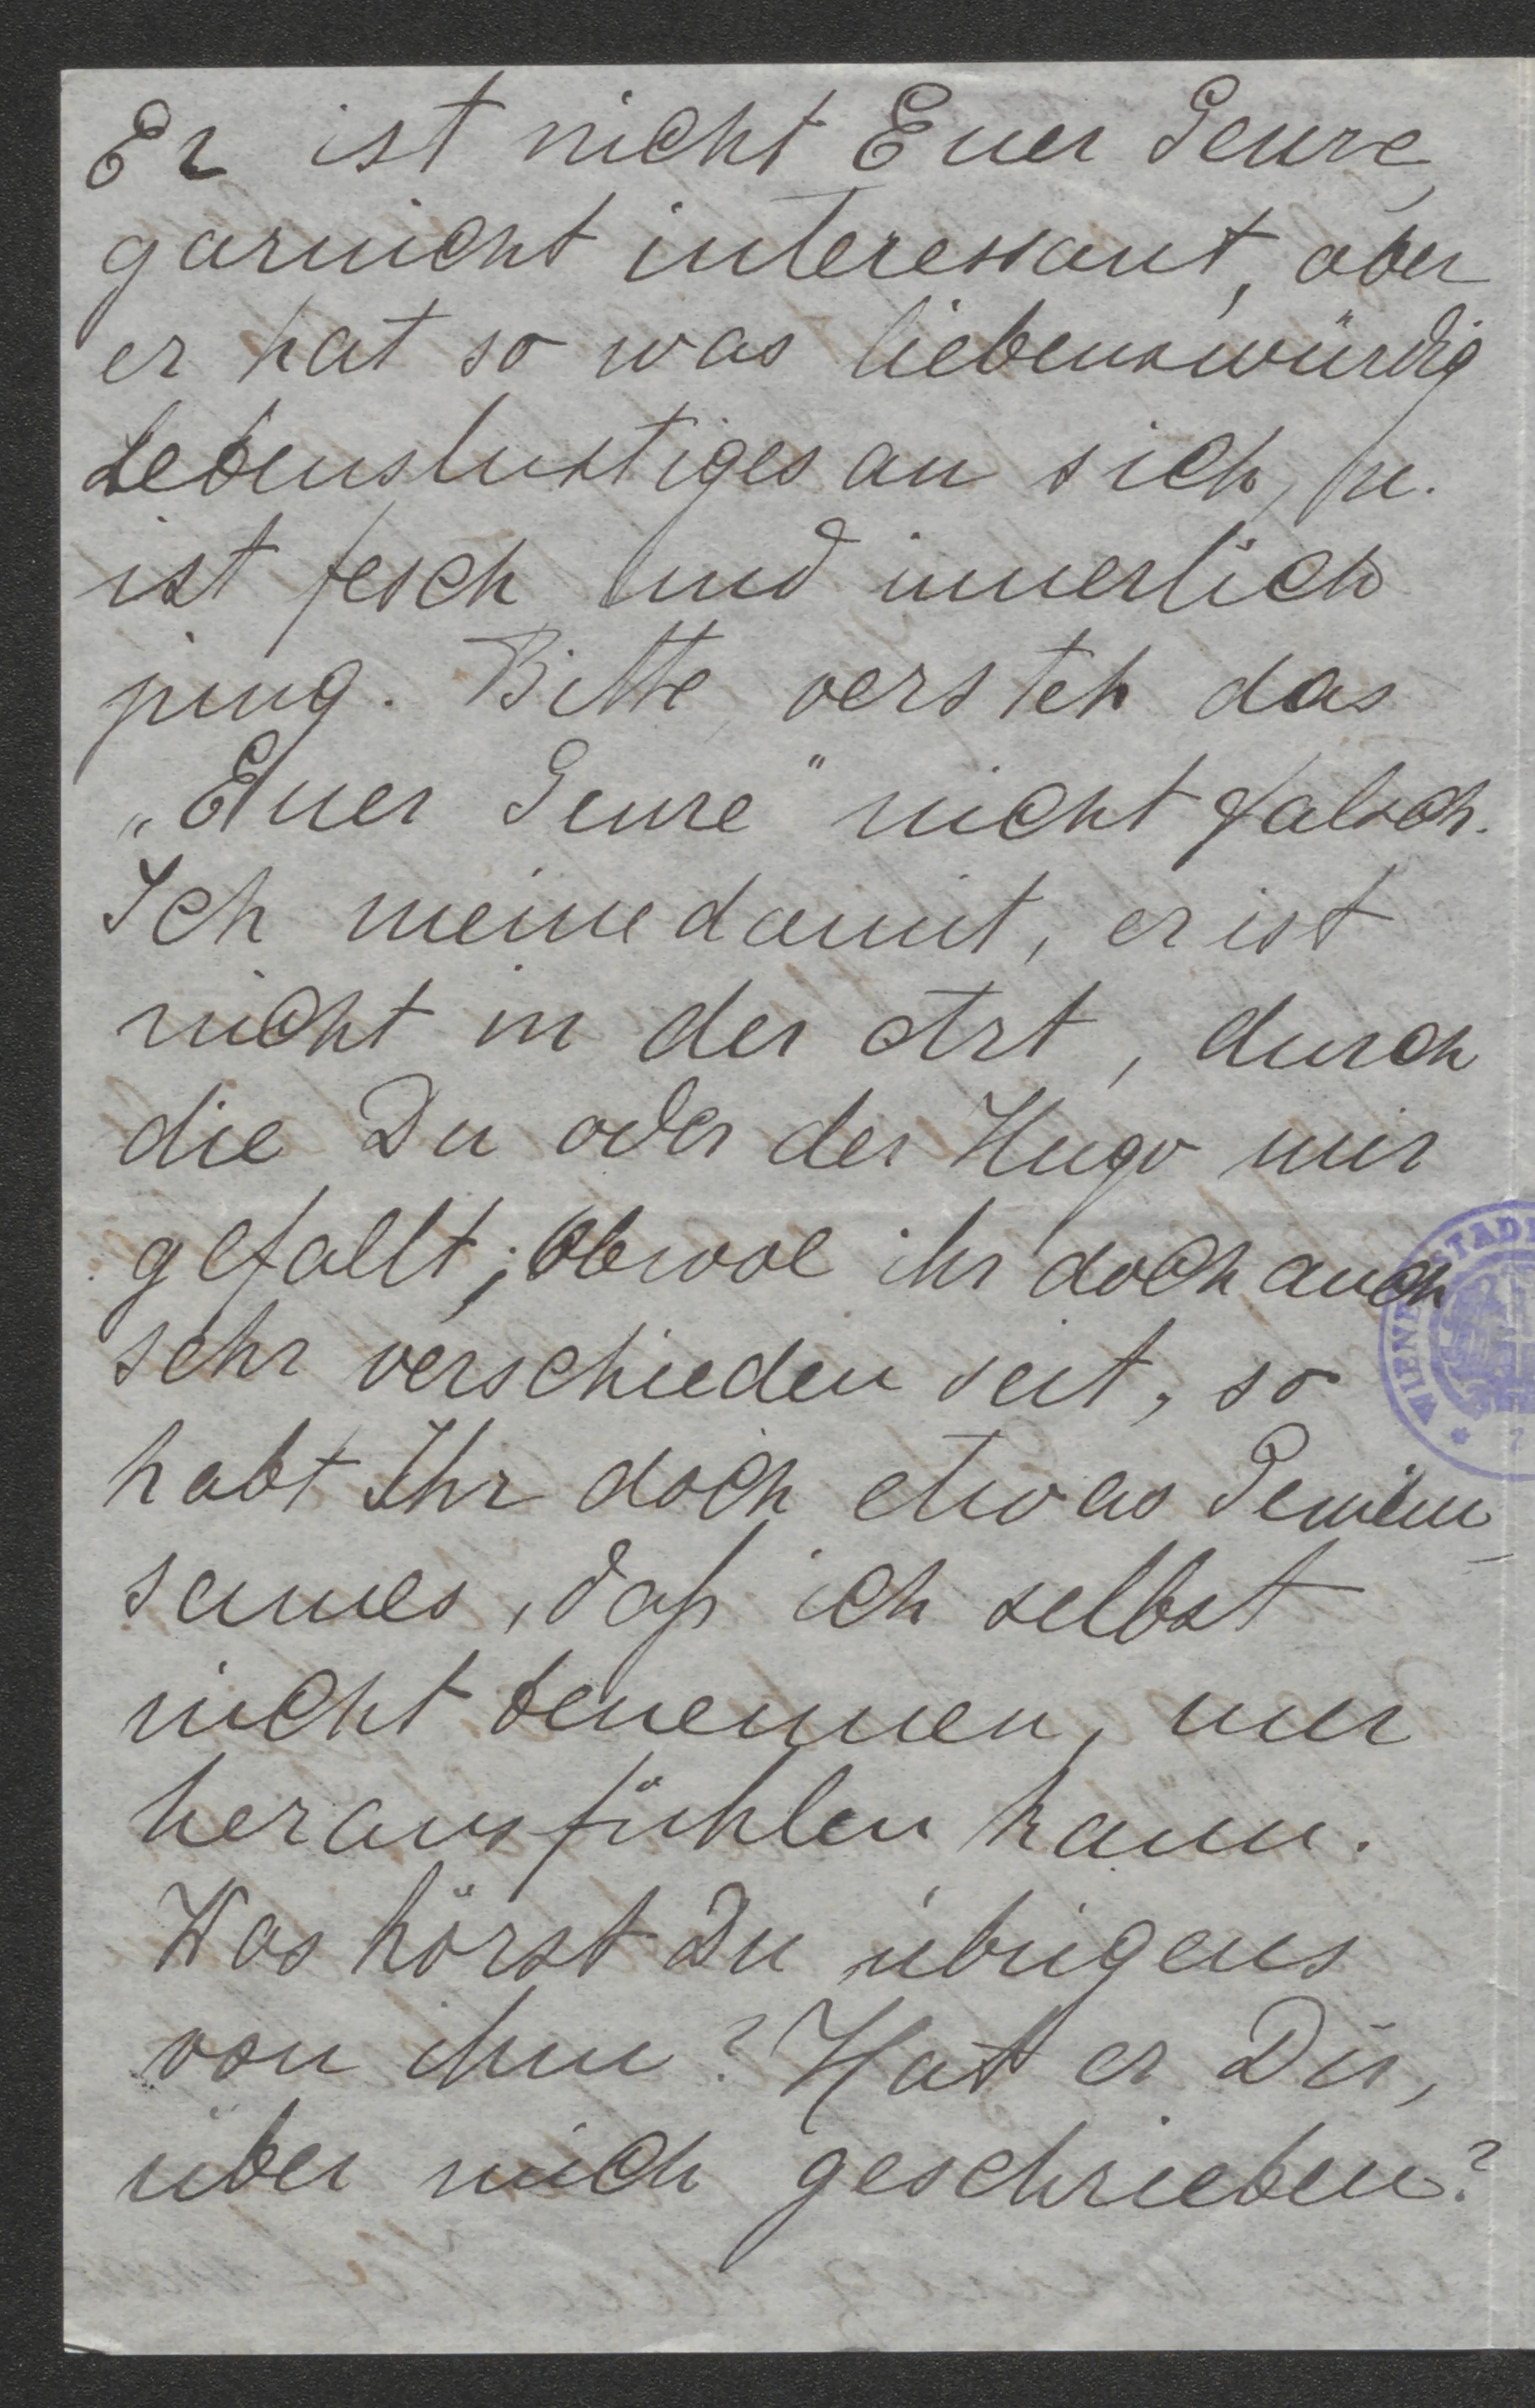 Er ist nicht Euer Genre,
garnicht interessant, aber
er hat so was liebenswürdig
Lebenslustiges an sich, u.
ist fesch und innerlich
jung. Bitte versteh das
„Euer Genre" nicht falsch.
Ich meine damit, er ist
nicht in der Art, durch
die Du oder der Hugo mir
gefallt; obwol ihr doch auch
sehr verschieden seit, so
habt Ihr doch etwas Gemein-
sames, daß ich selbst
nicht benennen, nur
herausfühlen kann.
Was hörst Du übrigens
von ihm? Hat er Dir,
über mich geschrieben?
WIENER STADT